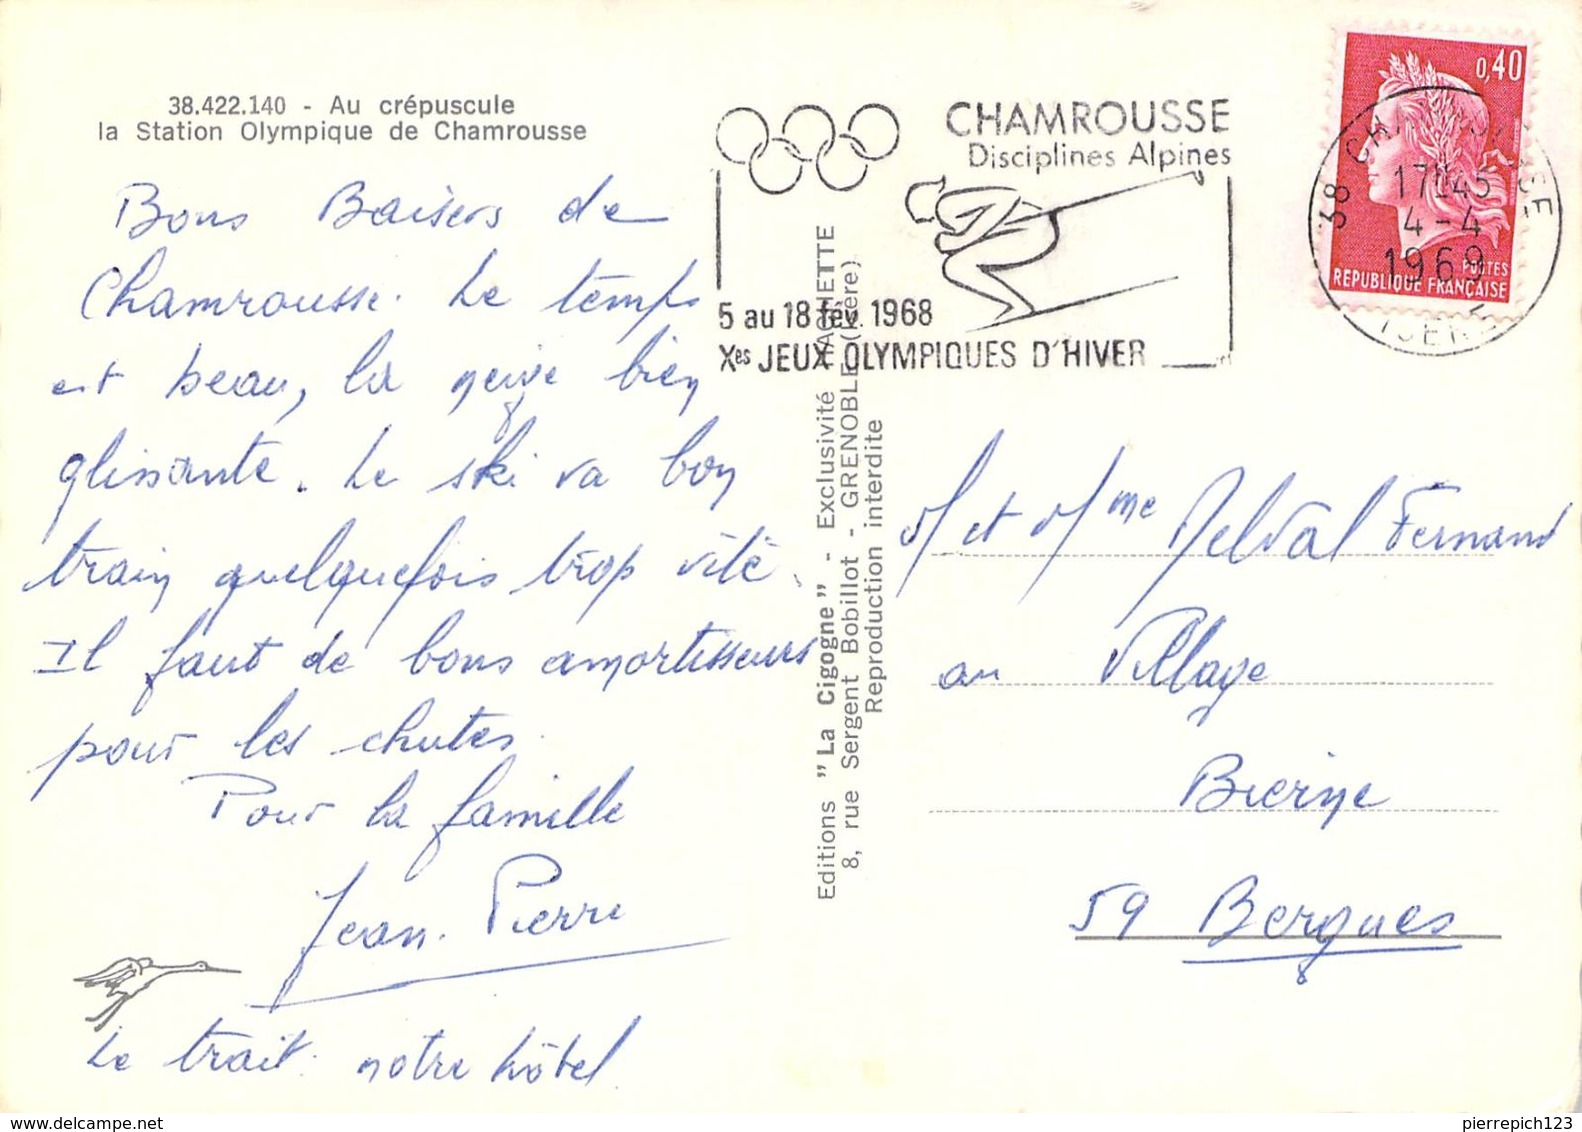 38.422.140 - Au crépuscule
la Station Olympique de Chamrousse
Bons Baisers de
Chamrousse. Le temps
est beau, la neige bien
glissante. Le ski va bon
train quelquefois trop vite.
Il faut de bons amortisseurs
pour les chutes.
Pour la famille
Jean-Pierre
Le trait: notre hôtel
Editions "La Cigogne" - Exclusivité HACHETTE
8, rue Sergent Bobillot - GRENOBLE (Isère)
Reproduction interdite
CHAMROUSSE
Disciplines Alpines
5 au 18 fév. 1968
Xes JEUX OLYMPIQUES D'HIVER
0,40
POSTES
REPUBLIQUE FRANÇAISE
38 CHAMROUSSE
17H45
4-4
1969
ISERE
M et Mme Delval Fernand
au Village
Bierne
59 Bergues
pierrepich123